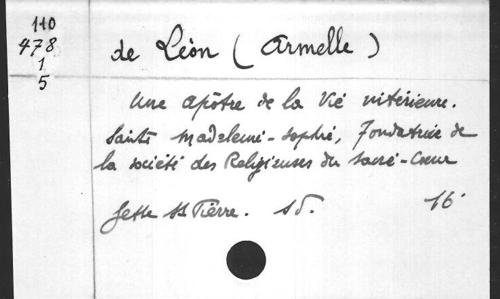 110
478
1
5
de Léon (Armelle)
Une apôtre de la Vie intérieure.
Sainte Madeleine-Sophie, Fondatrice de
la société des Religieuses du Sacré-Cœur
Jette St Pierre. sd. 16°